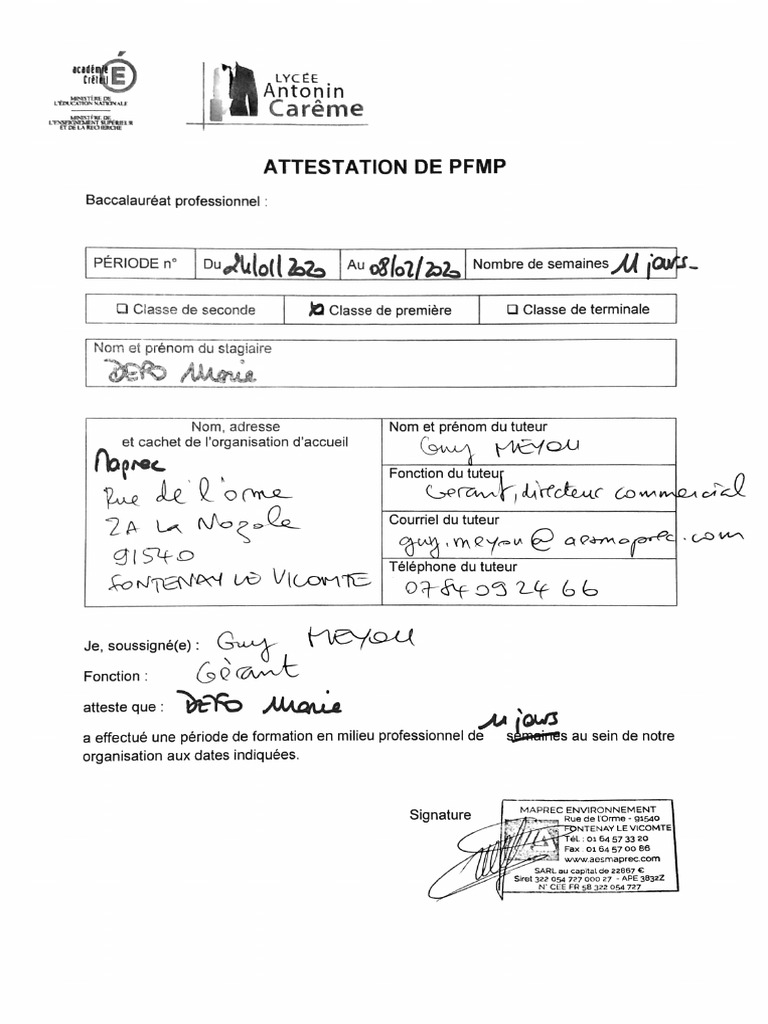 académie
Créteil
MINISTÈRE DE
L'ÉDUCATION NATIONALE
MINISTÈRE DE
L'ENSEIGNEMENT SUPÉRIEUR
ET DE LA RECHERCHE
LYCÉE
Antonin
Carême
ATTESTATION DE PFMP
Baccalauréat professionnel :
PÉRIODE n° Du 24/01/2020 Au 08/02/2020 Nombre de semaines 11 jours
Classe de seconde Classe de première Classe de terminale
Nom et prénom du stagiaire
DEFO Marie
Nom, adresse
et cachet de l'organisation d'accueil
Maprec
Rue de l'orme
ZA LA Mozole
91540
FONTENAY LE VICOMTE
Nom et prénom du tuteur
Guy MEYOU
Fonction du tuteur
Gerant, directeur commercial
Courriel du tuteur
guy.meyou@aesmaprec.com
Téléphone du tuteur
0784092466
Je, soussigné(e) : Guy MEYOU
Fonction : Gèrant
atteste que : DEFO Marie
11 jours
a effectué une période de formation en milieu professionnel de semaines au sein de notre
organisation aux dates indiquées.
Signature
MAPREC ENVIRONNEMENT
Rue de l'Orme - 91540
FONTENAY LE VICOMTE
Tél. : 01 64 57 33 20
Fax : 01 64 57 00 86
www.aesmaprec.com
SARL au capital de 22867 €
Siret 322 054 727 000 27 - APE 3832Z
N° CEE FR 58 322 054 727